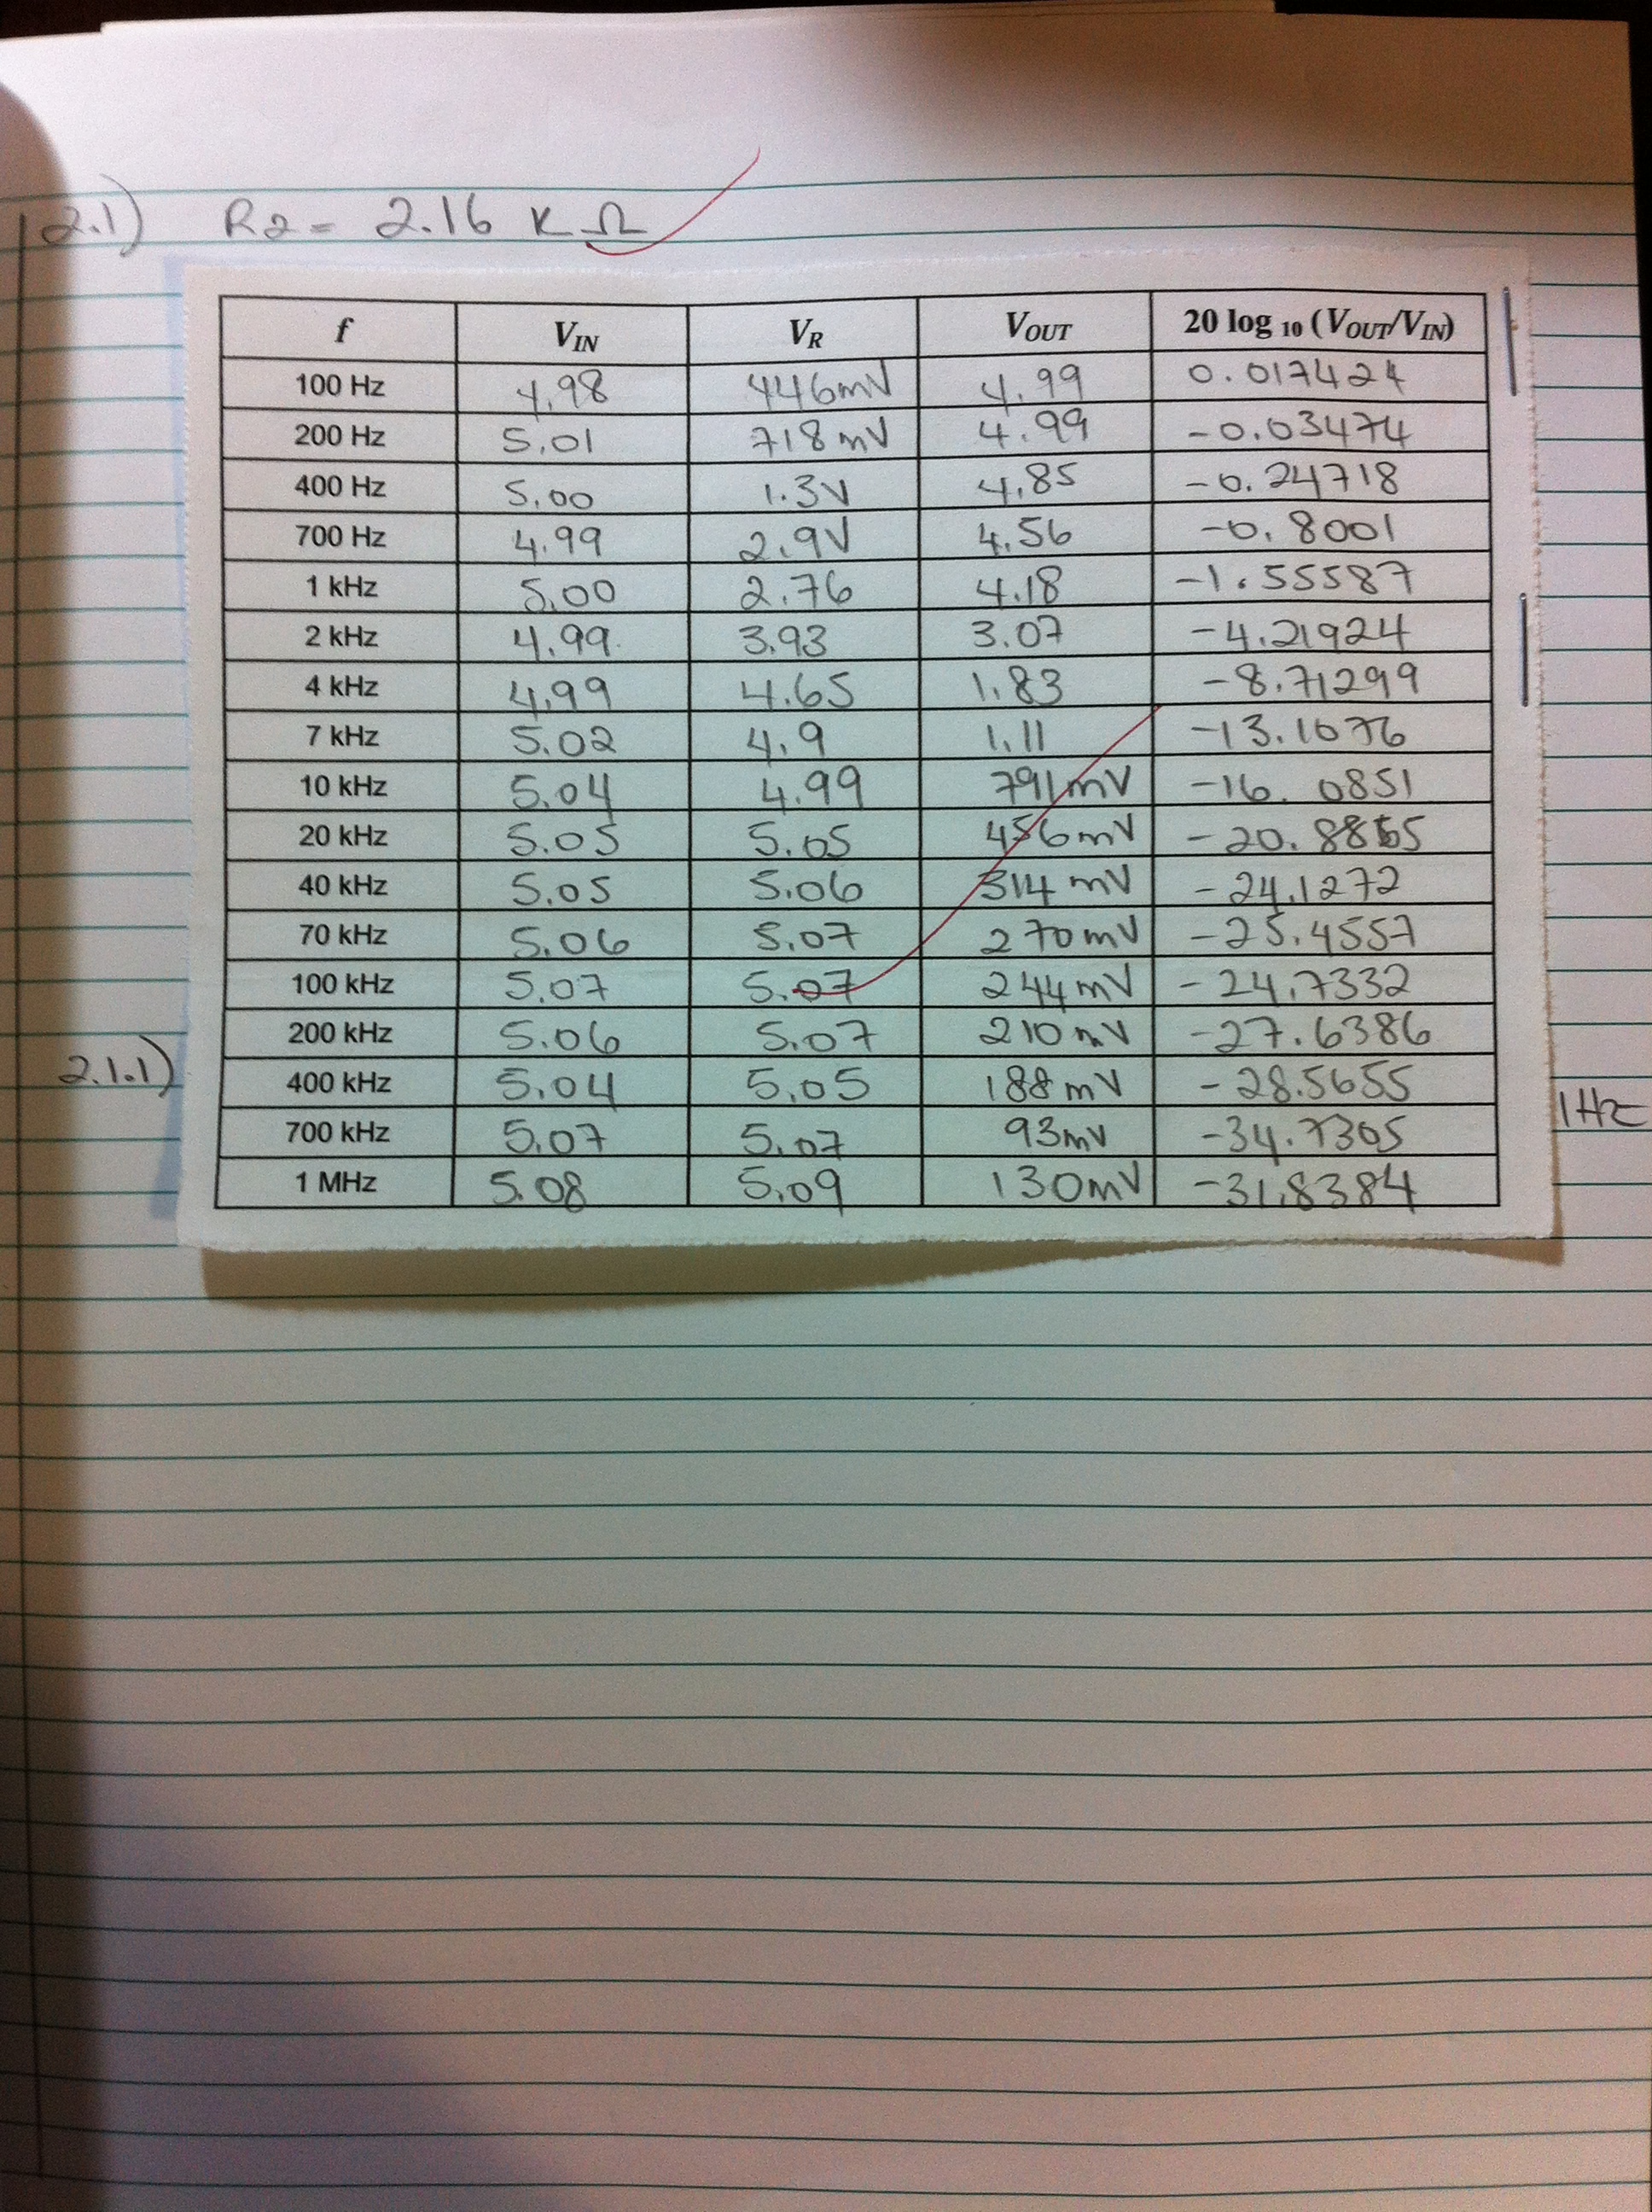 2.1) R2 = 2.16 KΩ
f VIN VR VOUT 20 log 10 (VOUT/VIN)
100 Hz 4.98 446mV 4.99 0.017424
200 Hz 5.01 718mV 4.99 -0.03474
400 Hz 5.00 1.3V 4.85 -0.24718
700 Hz 4.99 2.9V 4.56 -0.8001
1 kHz 5.00 2.76 4.18 -1.55587
2 kHz 4.99 3.93 3.07 -4.21924
4 kHz 4.99 4.65 1.83 -8.71299
7 kHz 5.02 4.9 1.11 -13.1076
10 kHz 5.04 4.99 791mV -16.0851
20 kHz 5.05 5.05 456mV
40 kHz 5.05 5.06 314mV -24.1272
70 kHz 5.06 5.07 270mV -25.4557
100 kHz 5.07 5.07 244mV -24.7332
200 kHz 5.06 5.07 210mV -27.6386
2.1.1) 400 kHz 5.04 5.05 188mV -28.5655
1Hz
700 kHz 5.07 5.07 93mV -34.7305
1 MHz 5.08 5.09 130mV -31.8384